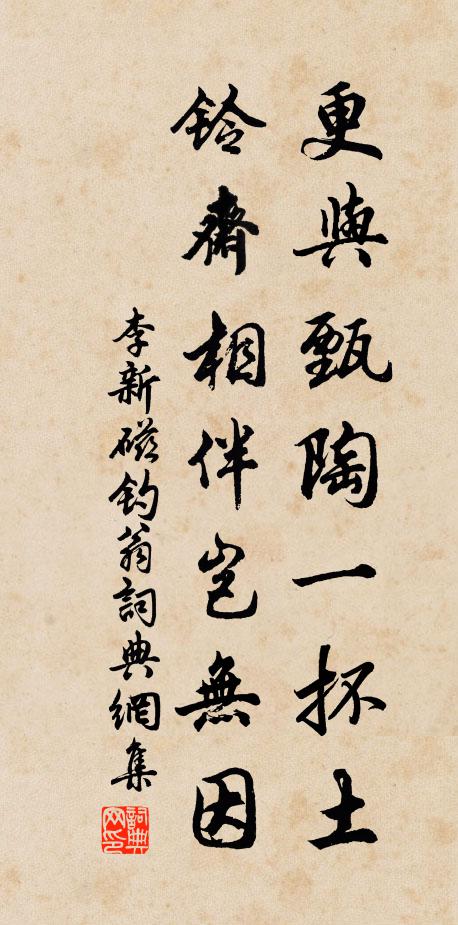 更與甄陶一抔土
鈴齋相伴豈無因
李新磁釣翁詞典網集
詞典
网印